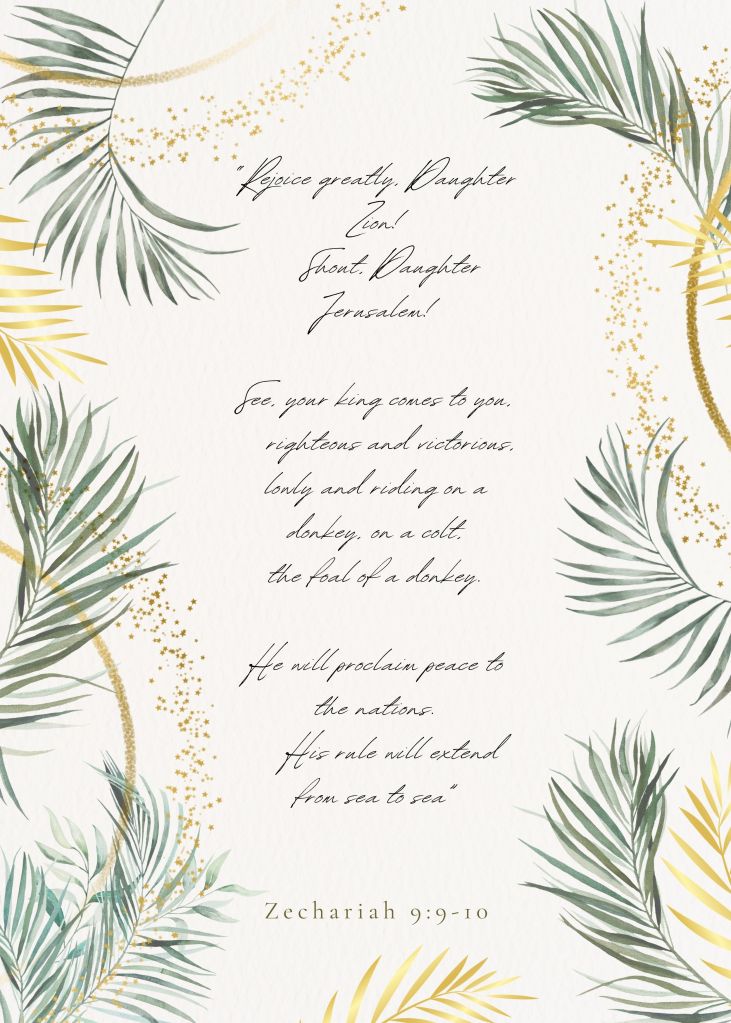 "Rejoice greatly, Daughter
Zion!
Shout, Daughter
Jerusalem!
See, your king comes to you,
righteous and victorious,
lowly and riding on a
donkey, on a colt,
the foal of a donkey.
He will proclaim peace to
the nations.
His rule will extend
from sea to sea"
Zechariah 9:9-10